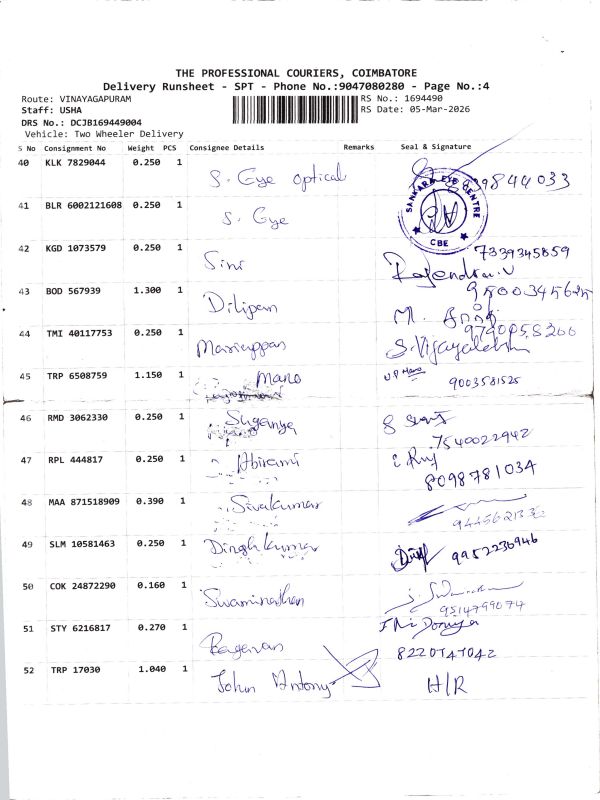 THE PROFESSIONAL COURIERS, COIMBATORE
Delivery Runsheet - SPT - Phone No.:9047080280 - Page No.:4
Route: VINAYAGAPURAM RS No.: 1694490
Staff: USHA RS Date: 05-Mar-2026
DRS No.: DCJB169449004
Vehicle: Two Wheeler Delivery
S No Consignment No Weight PCS Consignee Details Remarks Seal & Signature
40 KLK 7829044 0.250 1 S. Eye optical 9844033
SANKARA EYE CENTRE
CBE
41 BLR 6002121608 0.250 1 S. Eye
42 KGD 1073579 0.250 1 Sini 7339345859
Rajendran.V
43 BOD 567939 1.300 1 Dilipan 9500345625
M.
44 TMI 40117753 0.250 1 Mariappan
S. Vijayalakshmi
45 TRP 6508759 1.150 1 Mano 9003581525
46 RMD 3062330 0.250 1 Suganya
7540022942
47 RPL 444817 0.250 1 Abirami
8098781034
48 MAA 871518909 0.390 1 Sivakumar
49 SLM 10581463 0.250 1 Dinesh kumar 9952236946
50 COK 24872290 0.160 1 Swaminathan
9514799074
51 STY 6216817 0.270 1 Ragavan
8220747042
52 TRP 17030 1.040 1 John Antony H/R